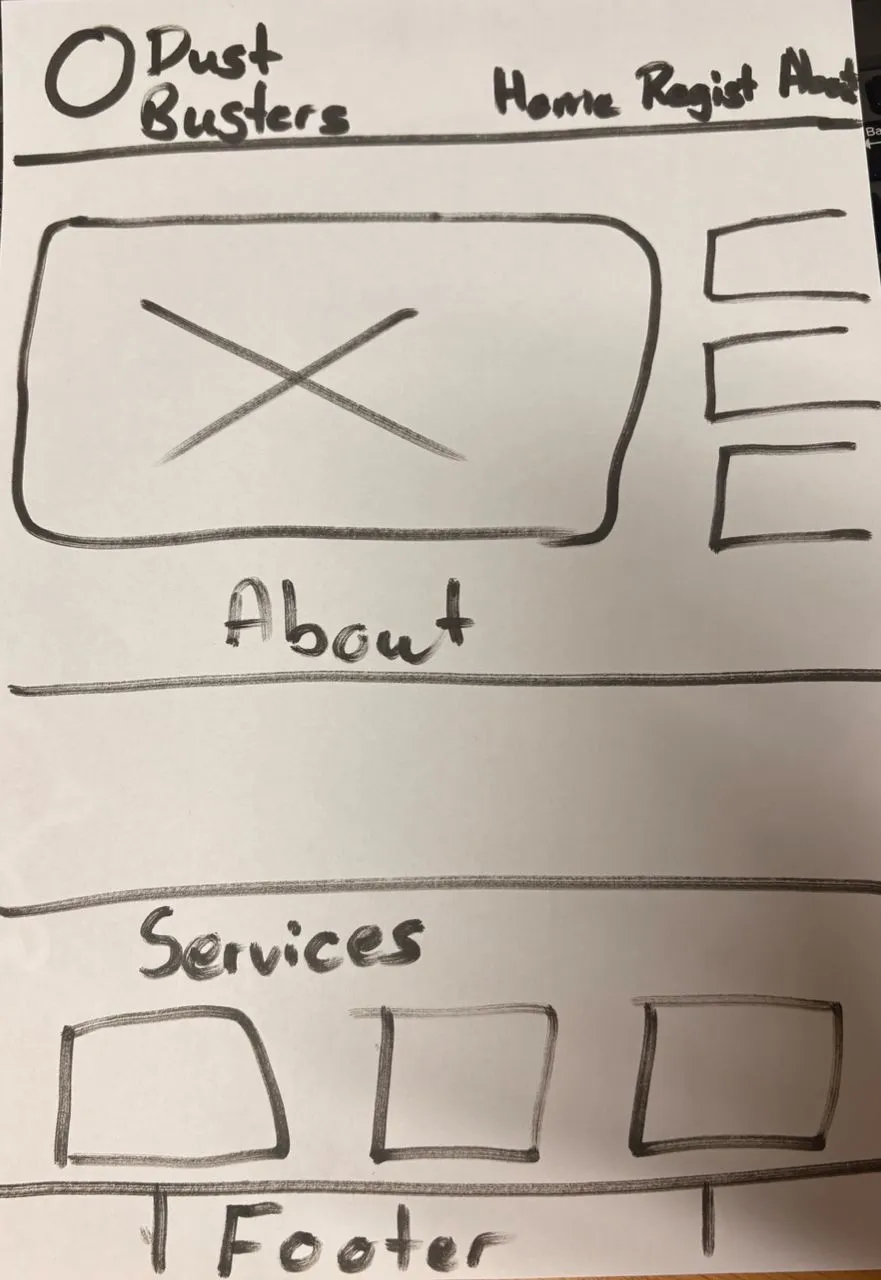 Dust
Busters
Home Regist About
About
Services
Footer